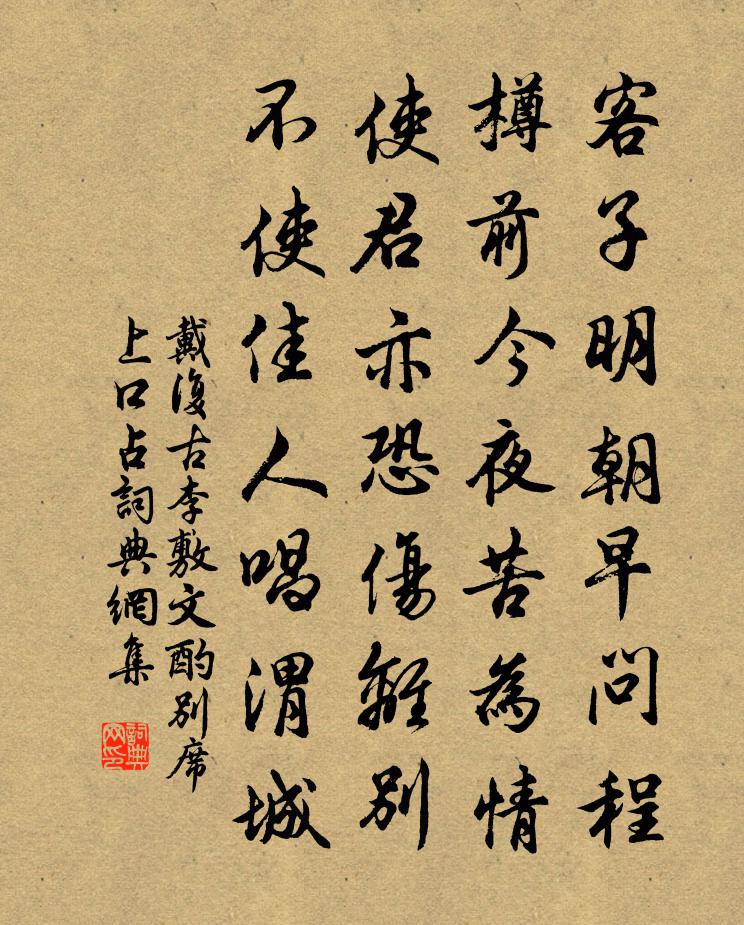 客子明朝早問程
樽前今夜苦為情
使君亦恐傷離別
不使佳人唱渭城
戴復古李敷文酌別席
上口占詞典網集
詞典
网印